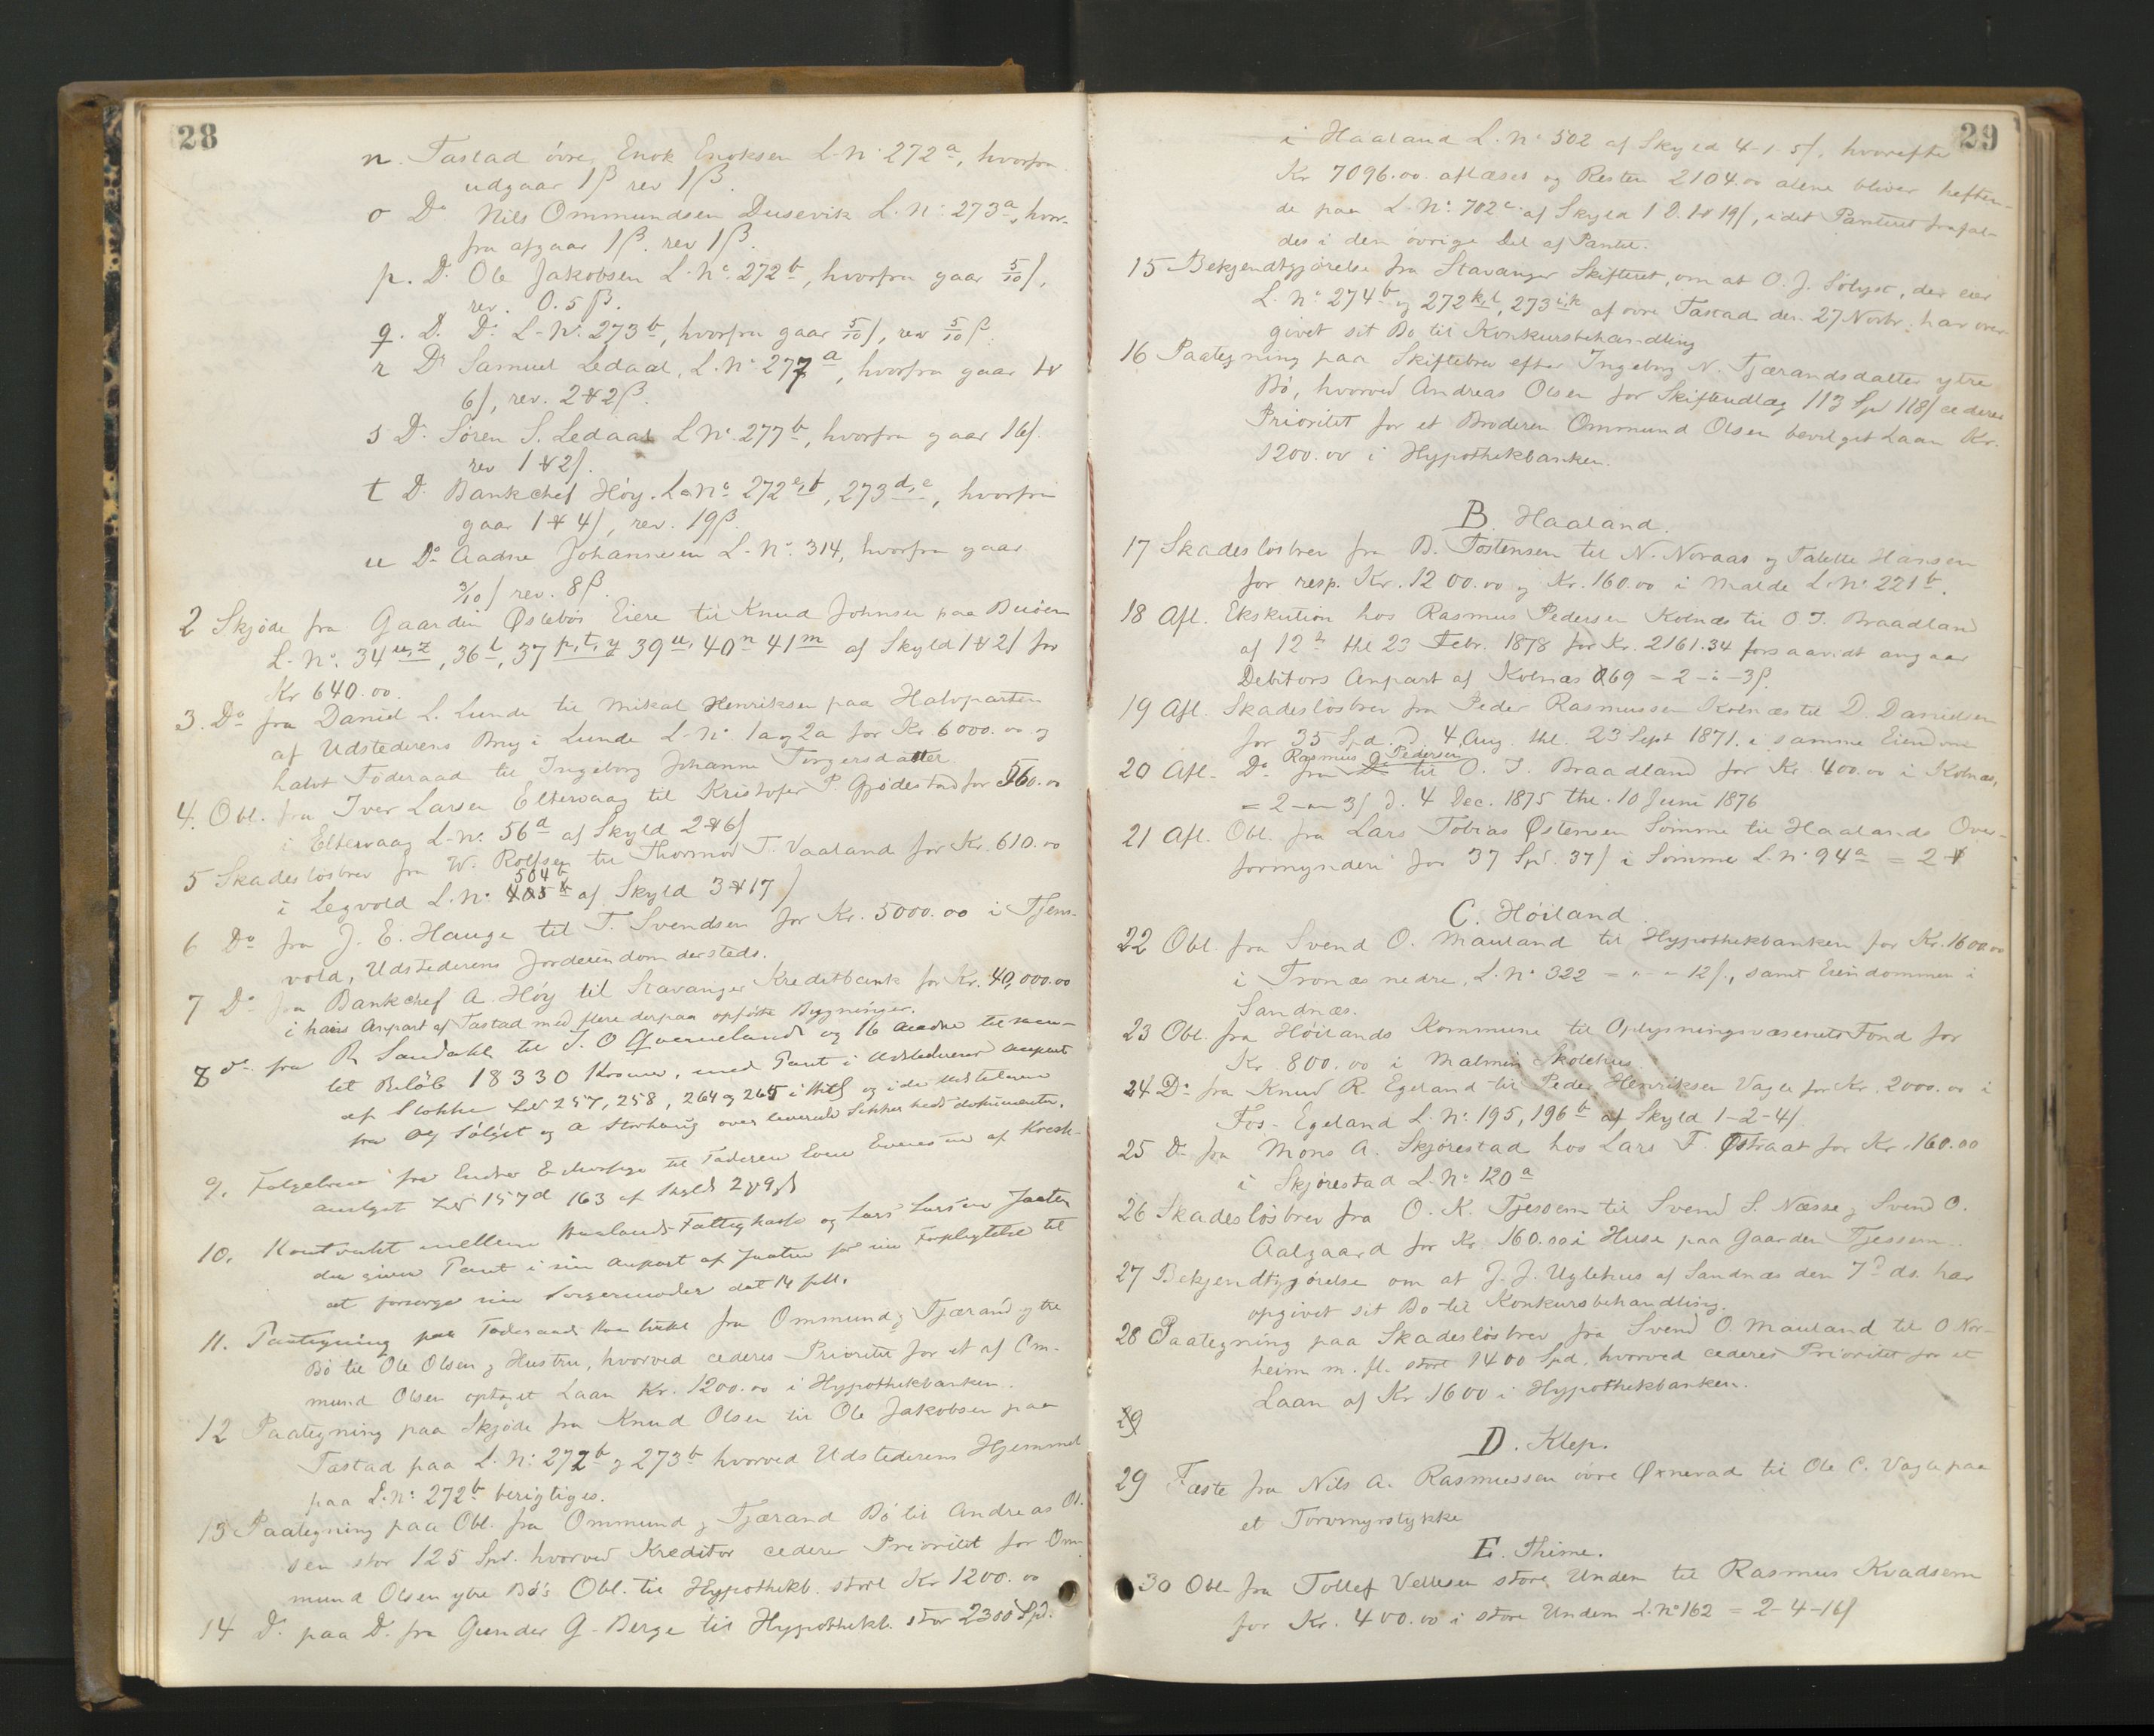 28
n. Tastad övre, Enok Enoksen L-No 272a, hvorfra
udgaar 1β rev 1β.
o Do Nils Ommundsen Dusevik L. No 273a, hvor-
fra afgaar 1β. rev 1β.
p. Do Ole Jakobsen L. No 272b, hvorfra gaar 5/10 β,
rev. 0.5 β.
q. D. Do L-No. 273b, hvorfra gaar 5/10 β, rev 5/10 β.
r Do Samuel Ledaal, L. No 277a, hvorfra gaar 1#
6β, rev. 2#2β.
s Do. Sören S. Ledaal L No. 277b, hvorfra gaar 16β.
rev 1#2β.
t D. Bankchef Höy. L. No 272e,f, 273d,e, hvorfra
gaar 1#4β, rev. 19β.
u Do Aadne Johannesen L-No. 314, hvorfra gaar
3/10 β rev. 8β.
2 Skjöde fra Gaarden Östebös Eiere til Knud Johnsen paa Buöen
L. No. 34u,z, 36t, 37p,t,y 39u, 40n 41m af Skyld 1#2β for
Kr 640.00.
3. Do fra Daniel L. Lunde til Mikal Henriksen paa Halvparten
af Udstederens Brug i Lunde L-No. 1a og 2a for Kr 6000.00 og
halvt Föderaad til Ingeborg Johanne Torgersdatter.
4. Obl. fra Iver Larsen Eltervaag til Kristofer P. Gjödestad for 560.00
i Eltervaag L-No. 56a af Skyld 2#6β
5 Skadeslösbrev fra W. Rolfsen til Thormod T. Vaaland for Kr. 610.00
i Legvold L. No. 504b af Skyld 3#17β
6 Do fra J. E. Hauge til T. Svendsen for Kr. 5000.00 i Tjens-
vold, Udstederens Jordeiendom dersteds.
7 Do fra Bankchef A. Höy til Stavanger Kreditbank for Kr. 40,000.00
i hans Anpart af Tastad med flere derpaa opförte Bygninger.
8 do fra R Sandahl til T. O Qverneland og 16 andre til sam-
let Belöb 18330 Kroner, med Pant i Udstederens Anpart
af Stokke LNo 257, 258, 264 og 265 i Hetl og i de Udstederen
fra Sölyst og A Storhaug overleverede Sikkerhedsdokumenter.
9. Fölgebrev fra Endre til Faderen Even Evensen af
LNo 157d 163 af Skyld 2#9β
10. Kontrakt mellem Haalands Fattigkasse og Lars Larsen Jaatten
der giver Pant i sin Anpart af Jaatten for sin Forpligtelse til
at forsörge sin Svigermoder dat 14
11. Paategning paa Föderaads Kontrakt fra Ommund og Tjærand ytre
Bö til Ole Olsen og Hustru, hvorved cederes Prioritet for et af Om-
mund Olsen optaget Laan Kr. 1200.00 i Hypothekbanken.
12 Paategning paa Skjöde fra Knud Olsen til Ole Jakobsen paa
Tastad paa L. No: 272b og 273b hvorved Udstederens Hjemmel
paa L. No: 272b berigtiges.
13 Paategning paa Obl. fra Ommund og Tjærand Bö til Andreas Ol-
sen stor 125 Spd. hvorved Kreditor cederer Prioritet for Om-
mund Olsen ytre Bö's Obl. til Hypothekb. stort Kr 1200.00
14 Do. paa Do. fra Gunder G. Berge til Hypothekb. stor 2300 Spd.
29
i Haaland L. No 502 af Skyld 4-1-5β, hvorefter
Kr 7096.00 aflæses og Resten 2104.00 alene bliver heften-
de paa L. No. 702c af Skyld 1 D. 1# 19β, idet Panteret frafal-
des i den övrige Del af Pantet.
15 Bekjendtgjörelse fra Stavanger Skifteret, om at O. J. Sölyst, der eier
L. No. 274b og 272k,l, 273i,k af övre Tastad den 27 Novbr. har over
givet sit Bo til Konkursbehandling
16 Paategning paa Skiftebrev efter Ingeborg N. Tjærandsdatter ytre
Bö, hvorved Andreas Olsen for Skifteudlæg 113 Spd 118β cederer
Prioritet for et Broderen Ommund Olsen bevilget Laan Kr.
1200.00 i Hypothekbanken.
B. Haaland.
17 Skadeslösbrev fra B. Tostensen til N. Noraas og Talette Hansen
for resp. Kr. 1200.00 og Kr. 160.00 i Malde L. No 221b.
18 Afl. Ekskution hos Rasmus Pedersen Kolnæs til O T. Braadland
af 12te thl 23 Febr. 1878 for Kr. 2161.34 forsaavidt angaar
Debitors Anpart af Kolnæs 69 = 2-1-3β.
19 Afl. Skadeslösbrev fra Peder Rasmussen Kolnæs til D. Danielsen
for 35 Spd. d. 4 Aug. thl. 23 Sept 1871. i samme Eiendom
20 Afl. Do fra Rasmus Pedersen til O. T. Braadland for Kr. 400.00 i Kolnæs,
= 2-"-3β d. 4 Dec. 1875 thl. 10 Juni 1876
21 Afl. Obl. fra Lars Tobias Östensen Sömme til Haalands Over-
formynderi for 37 Spd. 37β i Sömme L. No 94a = 2#
C. Höiland.
22 Obl. fra Svend O. Mauland til Hypothekbanken for Kr. 1600.00
i Tronæs nedre, L. No 322 = "-"-12β., samt Eiendommen i
Sandnæs.
23 Obl. fra Höilands Kommune til Oplysningsvæsenets Fond for
Kr. 800.00 i Malmin Skolehus.
24. Do fra Knud R. Egeland til Peder Henriksen Vagle for Kr. 2000.00 i
Fos-Egeland L. No: 195, 196b af Skyld 1-2-4β.
25 Do fra Mons A. Skjörestad hos Lars T. Östraat for Kr. 160.00
i Skjörestad L. No: 120a
26 Skadeslösbrev fra O. K. Tjessem til Svend S. Næsse og Svend O.
Aalgaard for Kr 160.00 i Huse paa Gaarden Tjessem.
27 Bekjendtgjörelse om at J. J. Uglehus af Sandnæs den 7de ds. har
opgivet sit Bo til Konkursbehandling.
28 Paategning paa Skadeslösbrev fra Svend O. Mauland til O Nor-
heim m. fl. stort 1400 Spd, hvorved cederes Prioritet for et
Laan af Kr 1600 i Hypothekbanken.
29
D. Klep.
29 Fæste fra Nils A. Rasmussen övre Öxnevad til Ole C. Vagle paa
et Torvmyrstykke
E. Thime.
30 Obl. fra Tollef Vellesen store Undem til Rasmus Kvadsem
for Kr. 400.00 i store Undem L. No 162 = 2-4-16β